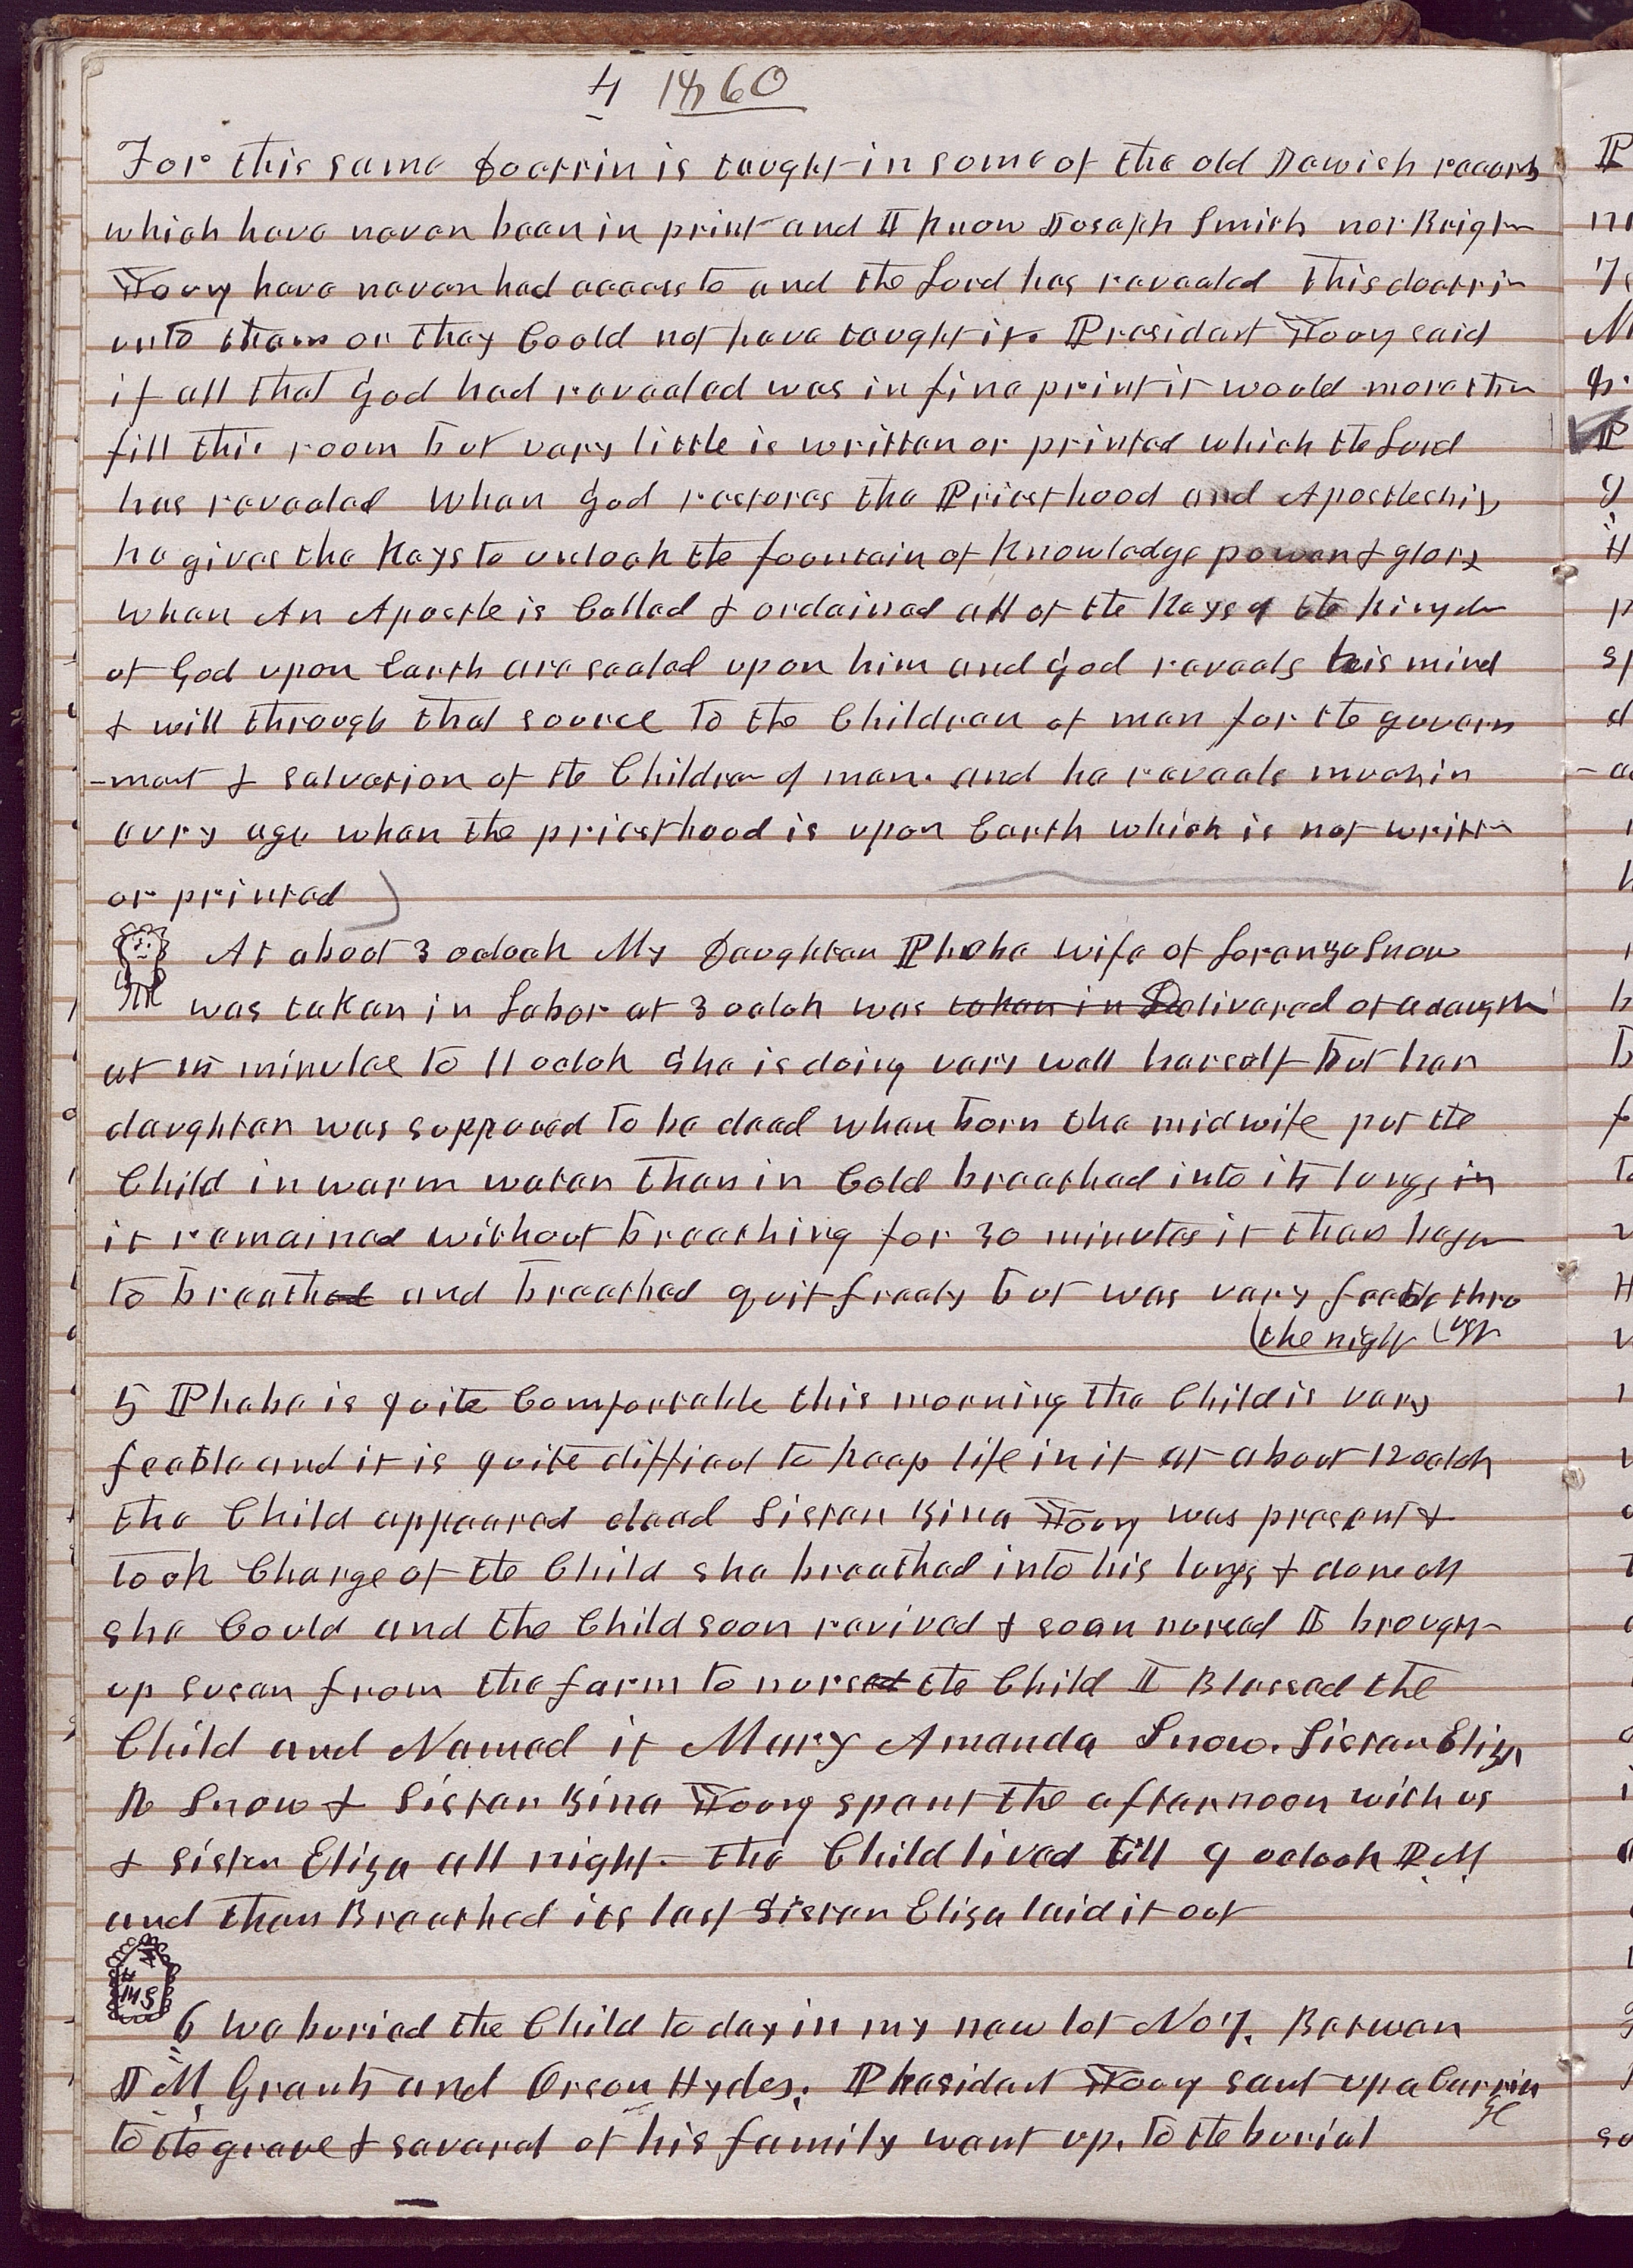 4 1860
For this same doctrin is taught in some of the old Jewish records
which have never been in print and I know Joseph Smith nor Brigham
Young have never had access to and the Lord has revealed this doctrin
unto them or they Could not have taught it. President Young said
if all that God had revealed was in fine print it would more than
fill this room but very little is written or printed which the Lord
has revealed When God restores the Priesthood and Apostleship
he gives the Keys to unlock the fountain of Knowledge power & glory
when An Apostle is Called & ordained all of the Keys of the Kingdom
of God upon Earth are sealed upon him and God reveals his mind
& will through that source to the Children of men for the govern
-ment & salvation of the Children of men. and he reveals much in
evry age when the priesthood is upon Earth which is not written
or printed
At about 3 oclock My Daughter Phebe wife of Lorenzo Snow
was taken in Labor at 3 oclok was taken in Delivered of a daughter
at 15 minutes to 11 oclok She is doing very well herself but her
daughter was supposed to be dead when born the midwife put the
Child in warm water then in Cold breathed into its lungs in
it remained without breathing for 30 minutes it then began
to breathed and breathed quit freely but was very feeble thro
ugh
the night
5 Phebe is quite Comfortable this morning the Child is very
feeble and it is quite difficut to keep life in it at about 12 oclok
the Child appeared dead Sister Zina Young was present &
took Charge of the Child she breathed into his lungs & done all
she Could and the Child soon revived & soon nursed I brought
up Susan from the farm to nurse it the Child I Blessed the
Child and Named it Mary Amanda Snow. Sister Eliza
R Snow & Sister Zina Young spent the afternoon with us
& sister Eliza all night. the Child lived till 9 oclock P.M
and then Breathed its last Sister Eliza laid it out
6 we buried the Child to day in my new lot No 7. Betwen
J M Grants and Orson Hydes. President Young sent up a Carria
ge
to the grave & several of his family went up. to the burial